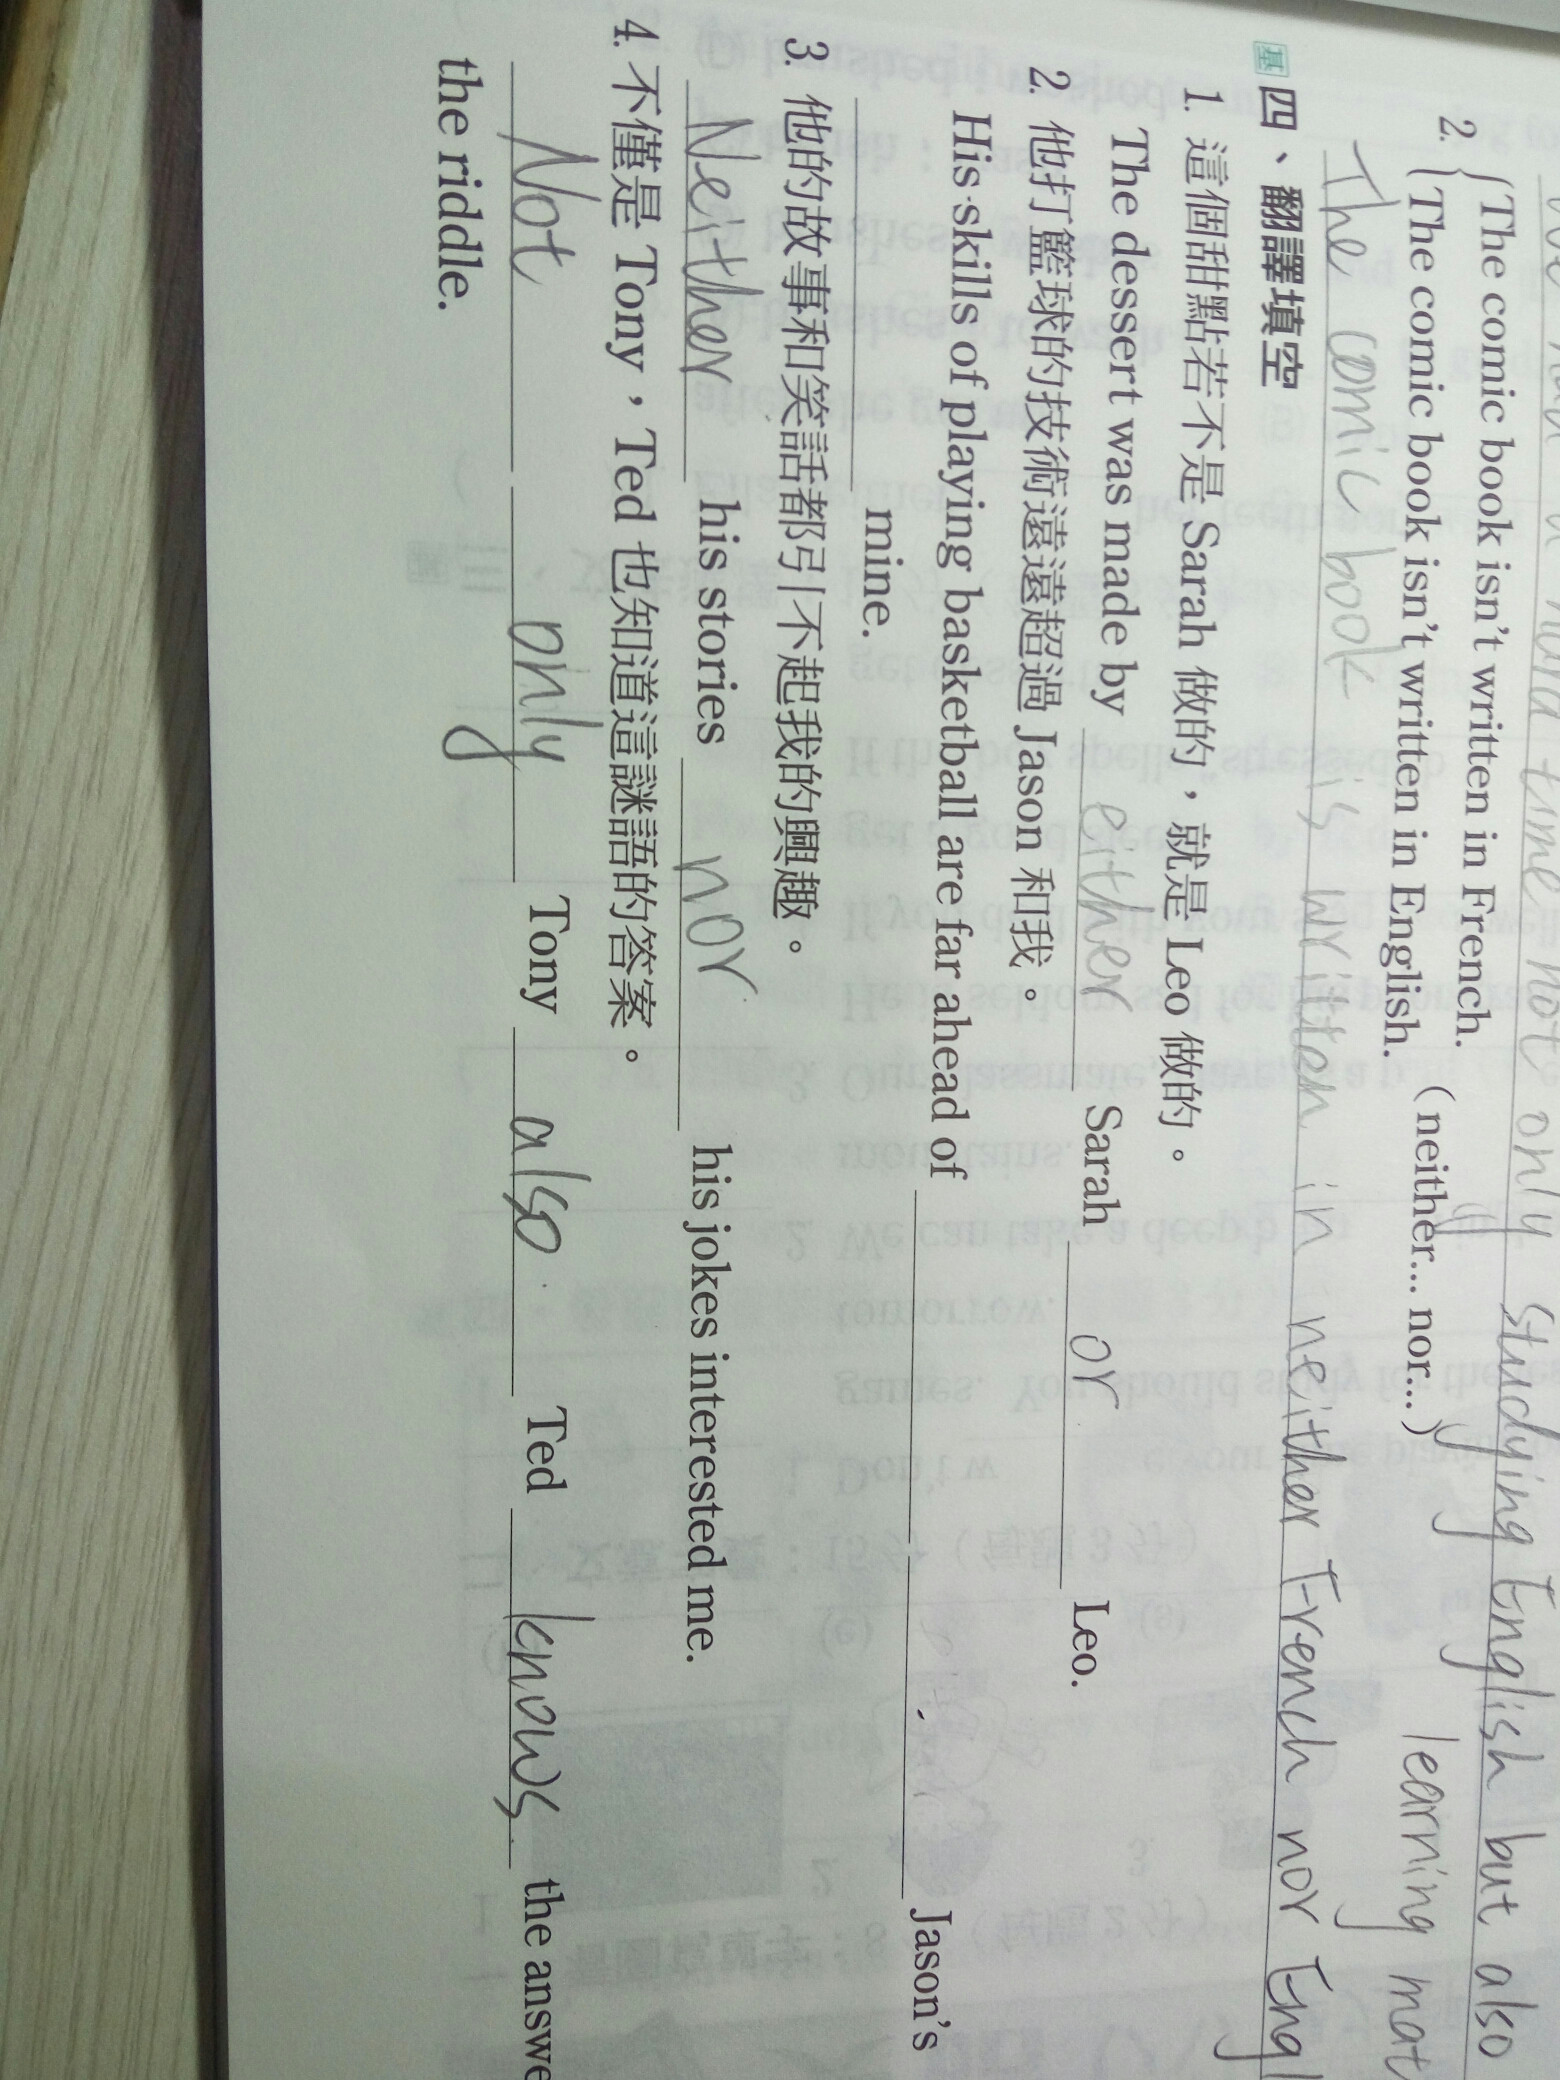 time not only studying English but also
learning mat
2. {The comic book isn't written in French.
{The comic book isn't written in English. (neither... nor...)
The comic book is written in neither French nor Engl
基 四、翻譯填空
1. 這個甜點若不是 Sarah 做的，就是 Leo 做的。
The dessert was made by either Sarah or Leo.
2. 他打籃球的技術遠遠超過 Jason 和我。
His skills of playing basketball are far ahead of ______ ______ Jason's
______ mine.
3. 他的故事和笑話都引不起我的興趣。
Neither his stories nor his jokes interested me.
4. 不僅是 Tony，Ted 也知道這謎語的答案。
Not only Tony also Ted knows the answe
the riddle.